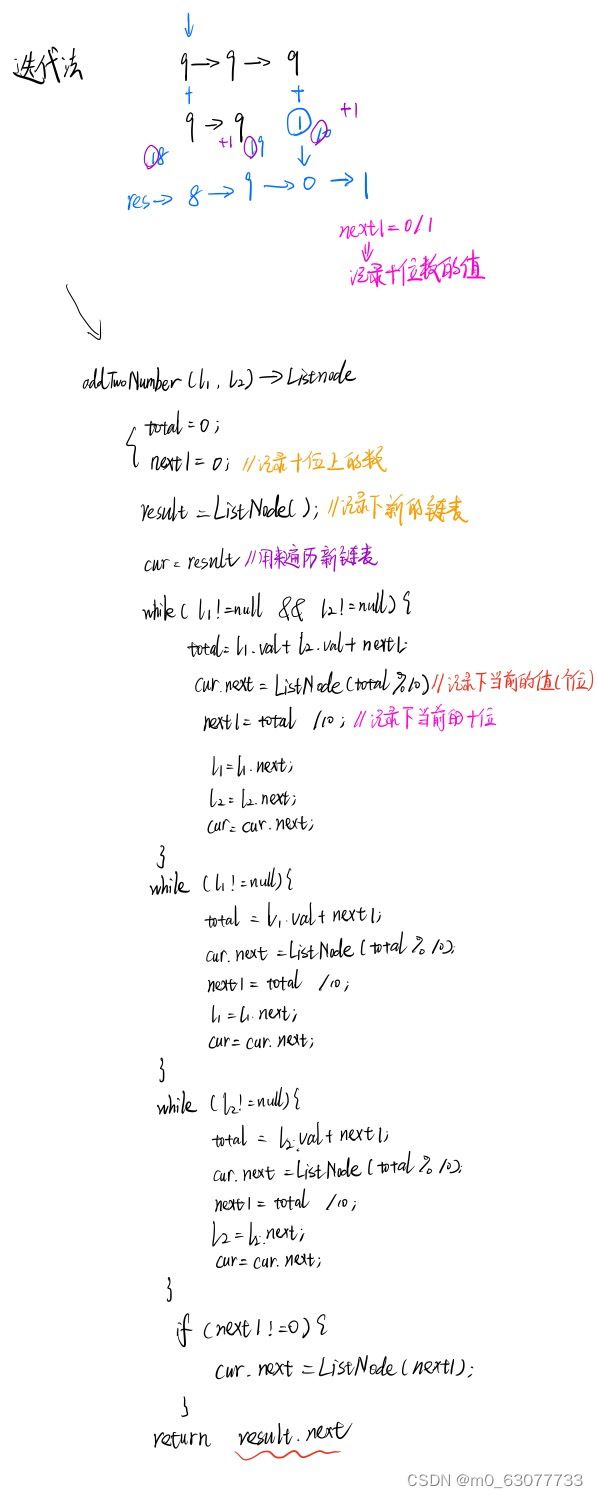 迭代法
9→9→9
+ +
9→9 1 +1
18 +1 19 10
res→8→9→0→1
next1=0/1
记录十位数的值
addTwoNumber(l1, l2)→Listnode
{ total=0;
next1=0; //记录十位上的数
result=ListNode(); //记录下新的链表
cur=result //用来遍历新链表
while( l1!=null && l2!=null){
total=l1.val+l2.val+next1;
cur.next=ListNode(total%10) //记录下当前的值(个位)
next1=total /10; //记录下当前的十位
l1=l1.next;
l2=l2.next;
cur=cur.next;
}
while (l1!=null){
total =l1.val+next1;
cur.next=ListNode(total%10);
next1=total /10;
l1=l1.next;
cur=cur.next;
}
while (l2!=null){
total = l2.val+next1;
cur.next=ListNode(total%10);
next1=total /10;
l2=l2.next;
cur=cur.next;
}
if (next1!=0){
cur.next=ListNode(next1);
}
return result.next
CSDN @m0_63077733